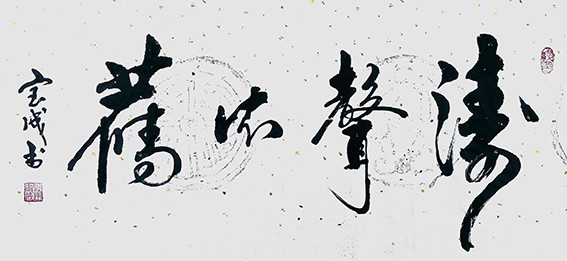 濤聲依舊
宝成书